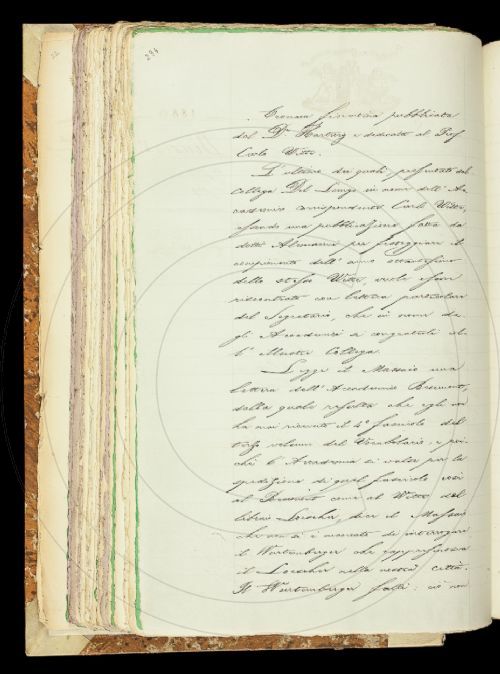 234
Cronaca fiorentina pubblicata
dal Dr. Hartwig e dedicata al Prof.
Carlo Witte.
L'ultima dei quali, presentata dal
Collega Del Lungo in nome dell'Ac-
cademico corrispondente Carlo Witte,
essendo una pubblicazione fatta da
dotti Alemanni per festeggiare il
compimento dell'anno ottantesimo
dello stesso Witte, vuole esser
riscontrata con lettera particolare
del Segretario, che in nome de-
gli Accademici si congratuli col-
l'illustre Collega.
Legge il Massaio una
lettera dell'Accademico
dalla quale risulta che egli non
ha mai ricevuto il 4° fascicolo del
terzo volume del Vocabolario; e poi-
ché l'Accademia si valse per la
spedizione di quel fascicolo così
al come al Witte del
libraio Loescher, dice il Massaio
che non si è mancato di interrogare
il Wurtenberger che rappresentava
il Loescher nella nostra città.
Il Wurtenberger : ciò non